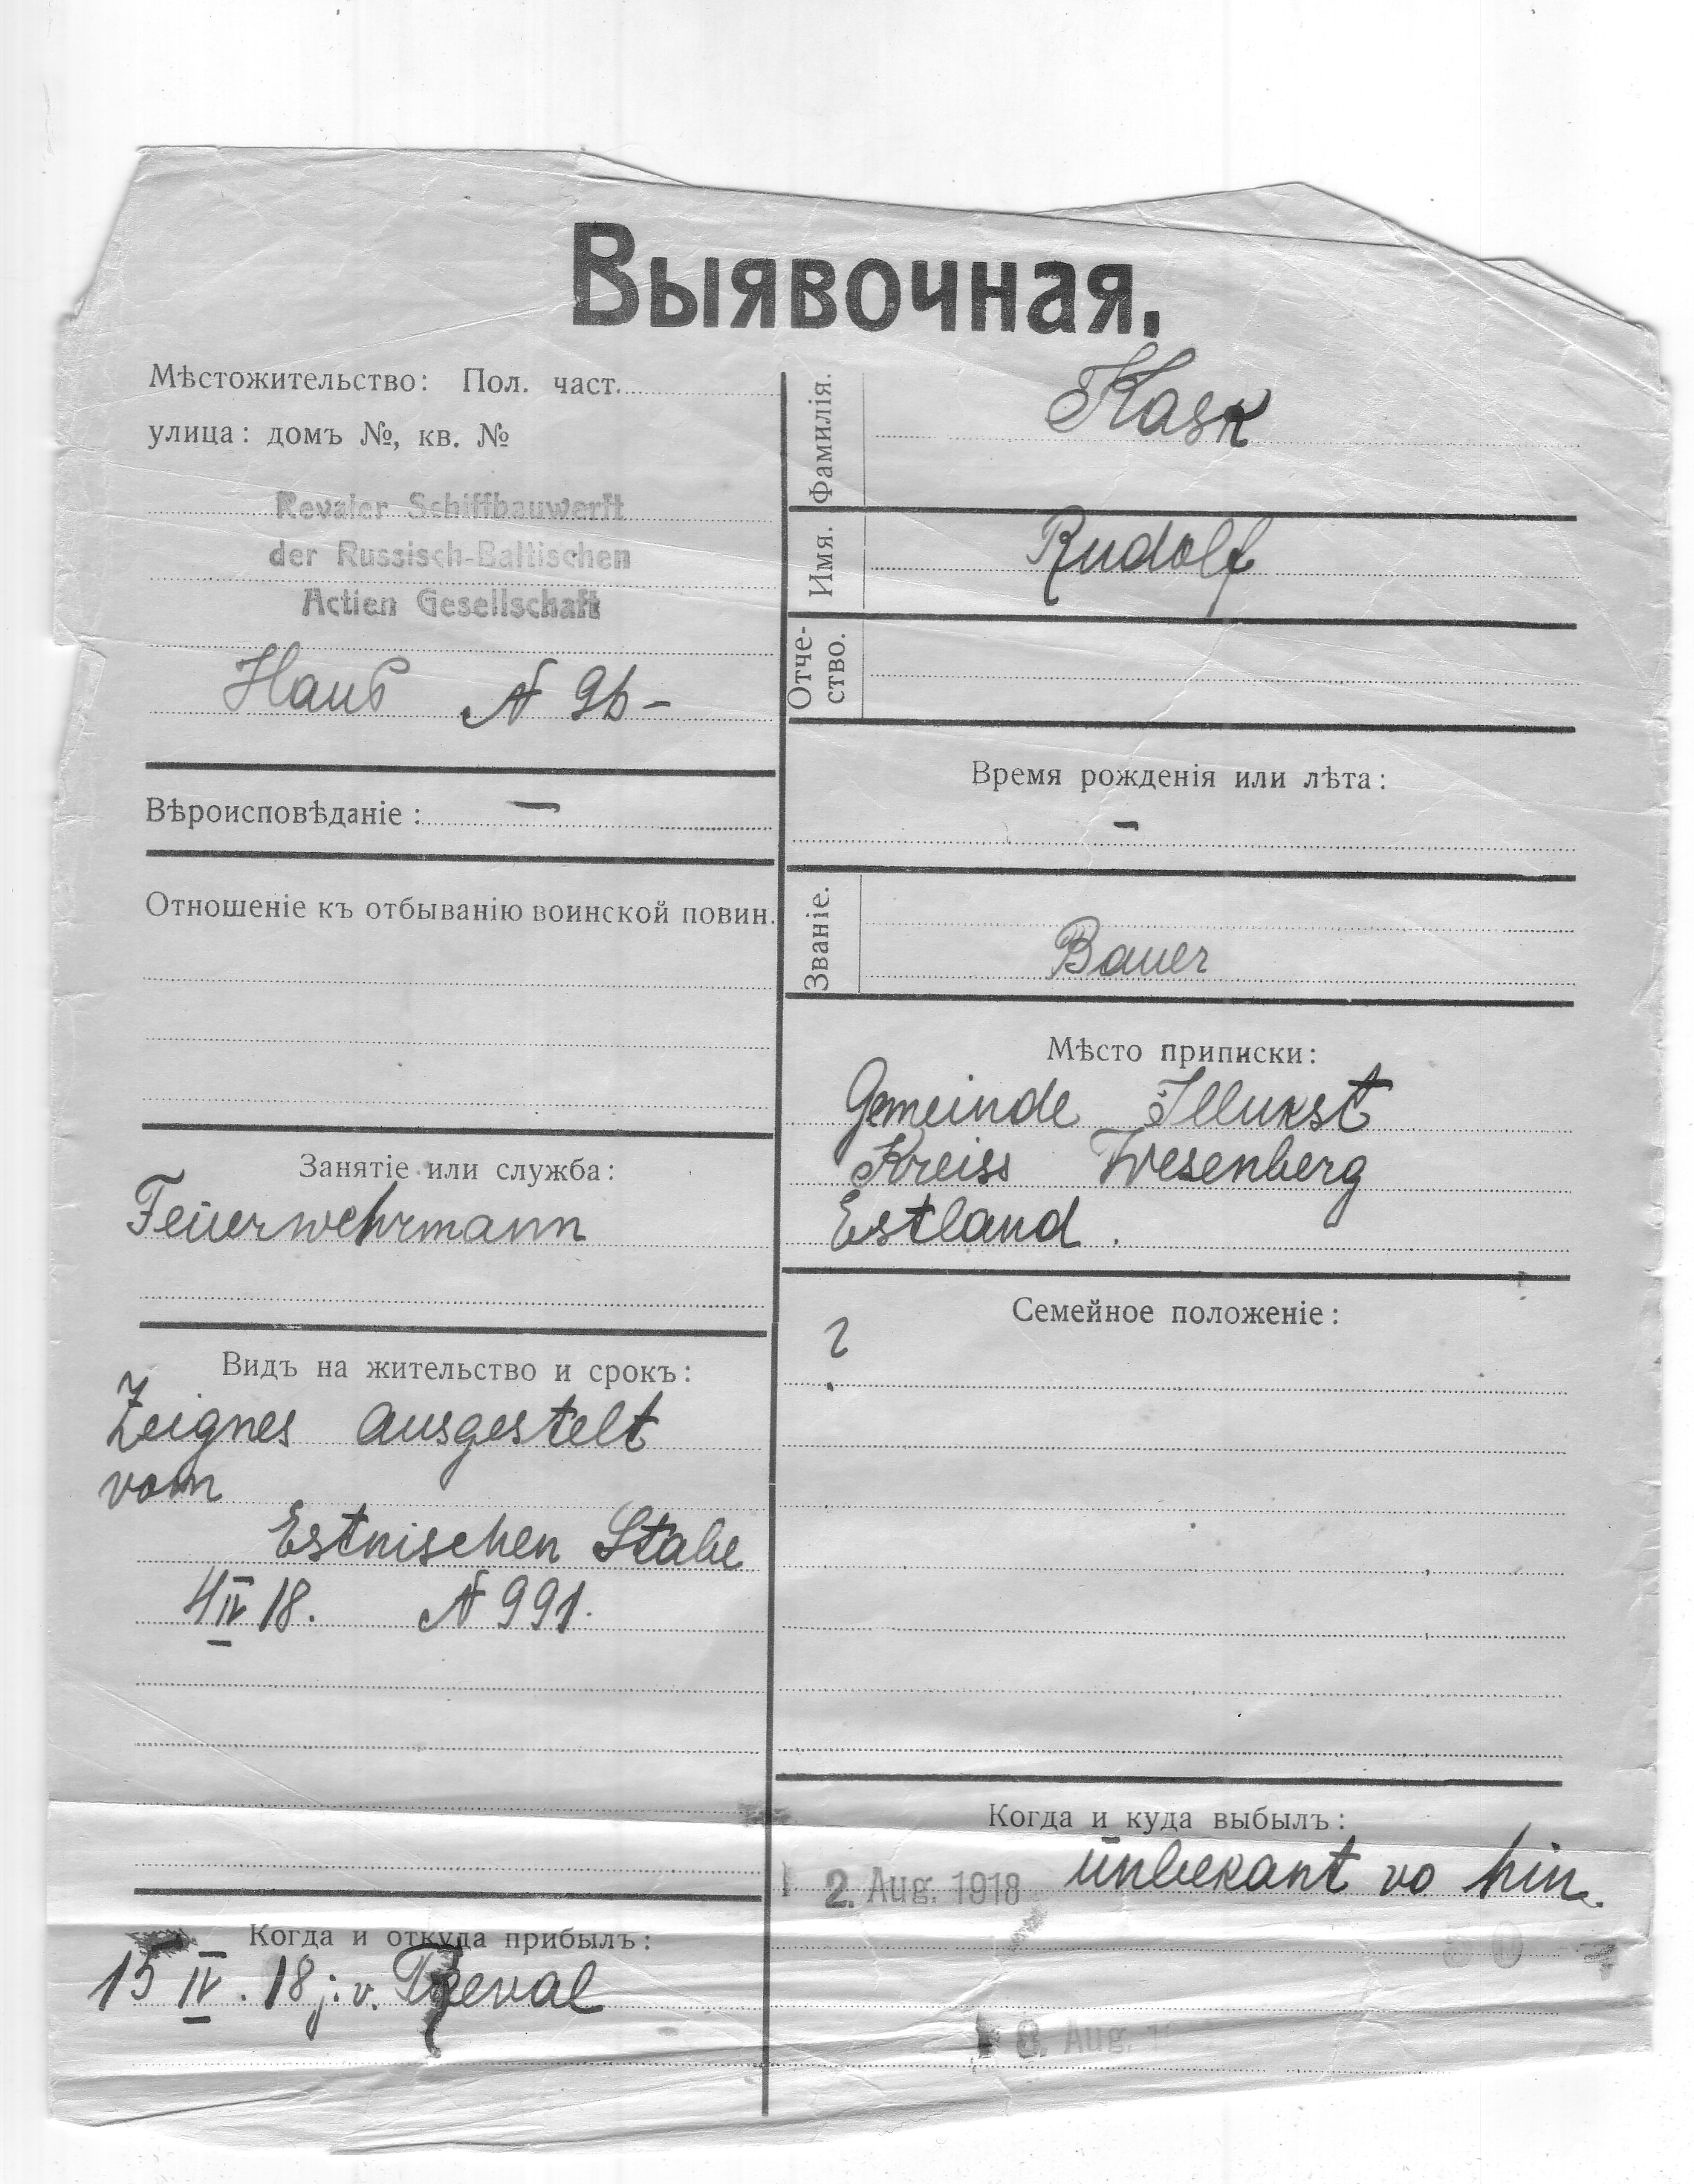 Выявочная.
Мѣстожительство: Пол. част.
улица: домъ №, кв. №
Revaler Schiffbauwerft
der Russisch-Baltischen
Actien Gesellschaft
Haus № 9b-
Вѣроисповѣданіе: —
Отношеніе къ отбыванію воинской повин.
Занятіе или служба:
Feüerwehrmann
Видъ на жительство и срокъ:
Zeignes ausgestelt
vom
Estnischen Stabe
4 IV 18. № 991.
Когда и откуда прибылъ:
15 IV. 18 j. v. Reval
Фамилія. Kask
Имя. Rudolf
Отче-
ство.
Время рожденія или лѣта:
-
Званіе. Bauer
Мѣсто приписки:
Gemeinde Illukst
Kreiss Wesenberg
Estland.
Семейное положеніе:
?
Когда и куда выбылъ:
2. Aug. 1918 ünbekant vo hin.
8. Aug.